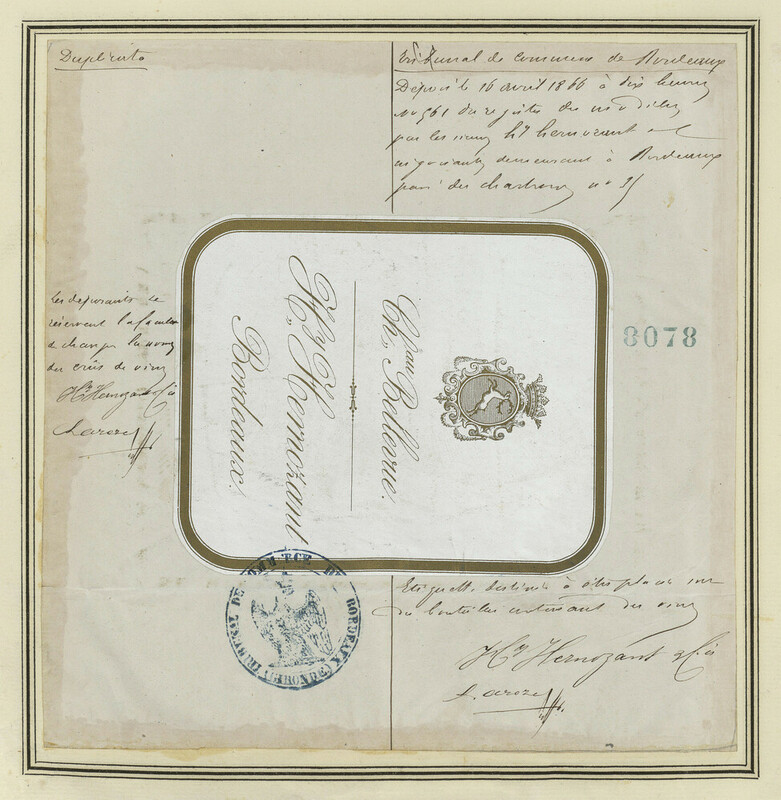 Duplicata
Tribunal de Commerce de Bordeaux
Déposé le 16 avril 1866 à dix heures
No 561 du registre des modèles
par les sieurs Hy Hernozant et Cie
négociants demeurant à Bordeaux
pavé des chartrons no 35
Les déposants se
réservent la faculté
de changer les noms
des crus de vins
Hy Hernozant & Cie
Laroze
Chateau Bellevue.
Hy & H. Hernozant
Bordeaux.
8078
TRIBUNAL DE COMMERCE DE BORDEAUX (GIRONDE)
Etiquette destinée à être placée sur
des bouteilles contenant des vins
Hy Hernozant & Cie
Laroze